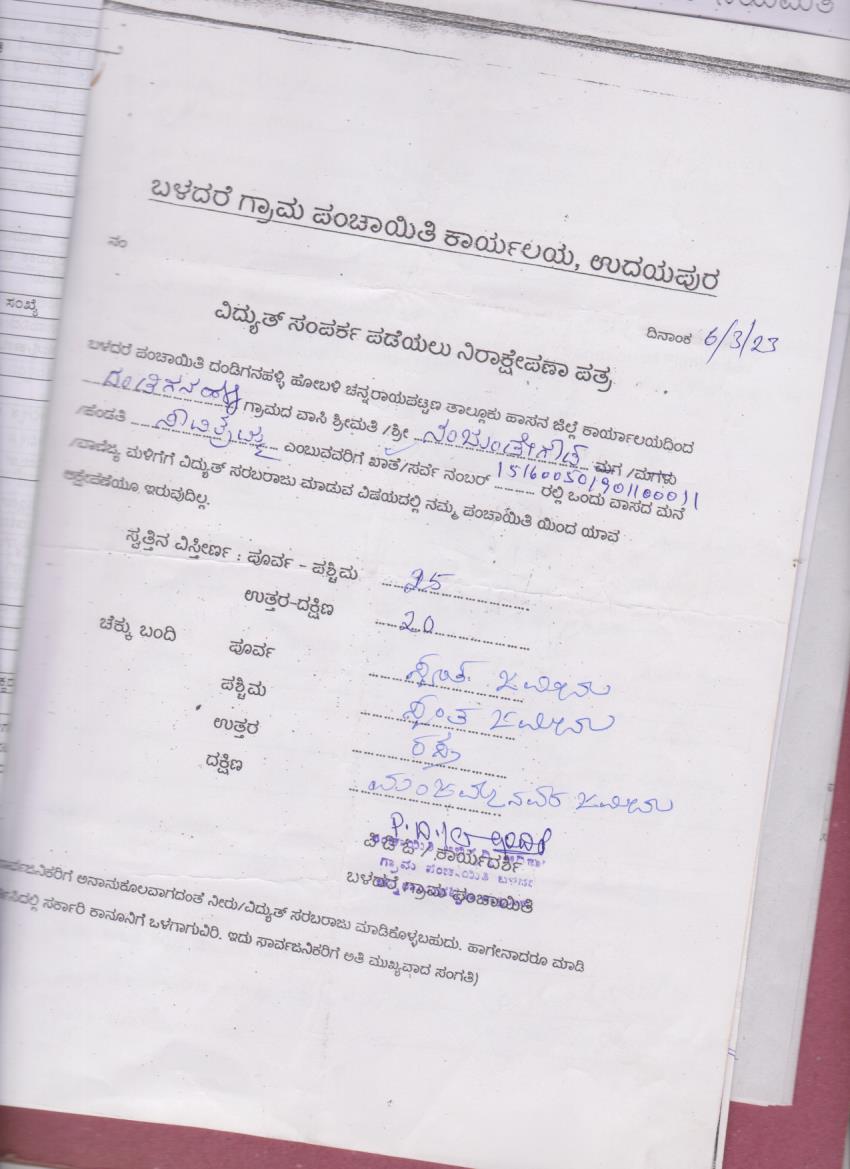 ಬಳದರೆ ಗ್ರಾಮ ಪಂಚಾಯಿತಿ ಕಾರ್ಯಲಯ, ಉದಯಪುರ
ನಂ
ದಿನಾಂಕ 6/3/23
ವಿದ್ಯುತ್ ಸಂಪರ್ಕ ಪಡೆಯಲು ನಿರಾಕ್ಷೇಪಣಾ ಪತ್ರ
ಬಳದರೆ ಪಂಚಾಯಿತಿ ದಂಡಿಗನಹಳ್ಳಿ ಹೋಬಳಿ ಚನ್ನರಾಯಪಟ್ಟಣ ತಾಲ್ಲೂಕು ಹಾಸನ ಜಿಲ್ಲೆ ಕಾರ್ಯಾಲಯದಿಂದ
ದಂಡಿಗನಹಳ್ಳಿ ಗ್ರಾಮದ ವಾಸಿ ಶ್ರೀಮತಿ /ಶ್ರೀ ನಂಜುಂಡೇಗೌಡ ಮಗ /ಮಗಳು
/ಹೆಂಡತಿ ಎಂಬುವವರಿಗೆ ಖಾತೆ/ಸರ್ವೆ ನಂಬರ್ 151600501901100011 ರಲ್ಲಿ ಒಂದು ವಾಸದ ಮನೆ
/ವಾಣಿಜ್ಯ ಮಳಿಗೆಗೆ ವಿದ್ಯುತ್ ಸರಬರಾಜು ಮಾಡುವ ವಿಷಯದಲ್ಲಿ ನಮ್ಮ ಪಂಚಾಯಿತಿ ಯಿಂದ ಯಾವ
ಆಕ್ಷೇಪಣೆಯೂ ಇರುವುದಿಲ್ಲ.
ಸ್ವತ್ತಿನ ವಿಸ್ತೀರ್ಣ : ಪೂರ್ವ - ಪಶ್ಚಿಮ 25
ಉತ್ತರ-ದಕ್ಷಿಣ 20
ಚೆಕ್ಕು ಬಂದಿ ಪೂರ್ವ ಸ್ವಂತ ಜಮೀನು
ಪಶ್ಚಿಮ ಸ್ವಂತ ಜಮೀನು
ಉತ್ತರ ರಸ್ತೆ
ದಕ್ಷಿಣ ಮಂಜಮ್ಮನವರ ಜಮೀನು
ಪಿ ಡಿ ಓ / ಕಾರ್ಯದರ್ಶಿ
ಬಳದರೆ ಗ್ರಾಮ ಪಂಚಾಯಿತಿ
ಅನಾನುಕೂಲವಾಗದಂತೆ ನೀರು/ವಿದ್ಯುತ್ ಸರಬರಾಜು ಮಾಡಿಕೊಳ್ಳಬಹುದು. ಹಾಗೇನಾದರೂ ಮಾಡಿ
ಸರ್ಕಾರಿ ಕಾನೂನಿಗೆ ಒಳಗಾಗುವಿರಿ. ಇದು ಸಾರ್ವಜನಿಕರಿಗೆ ಅತಿ ಮುಖ್ಯವಾದ ಸಂಗತಿ)
ಸಂಖ್ಯೆ